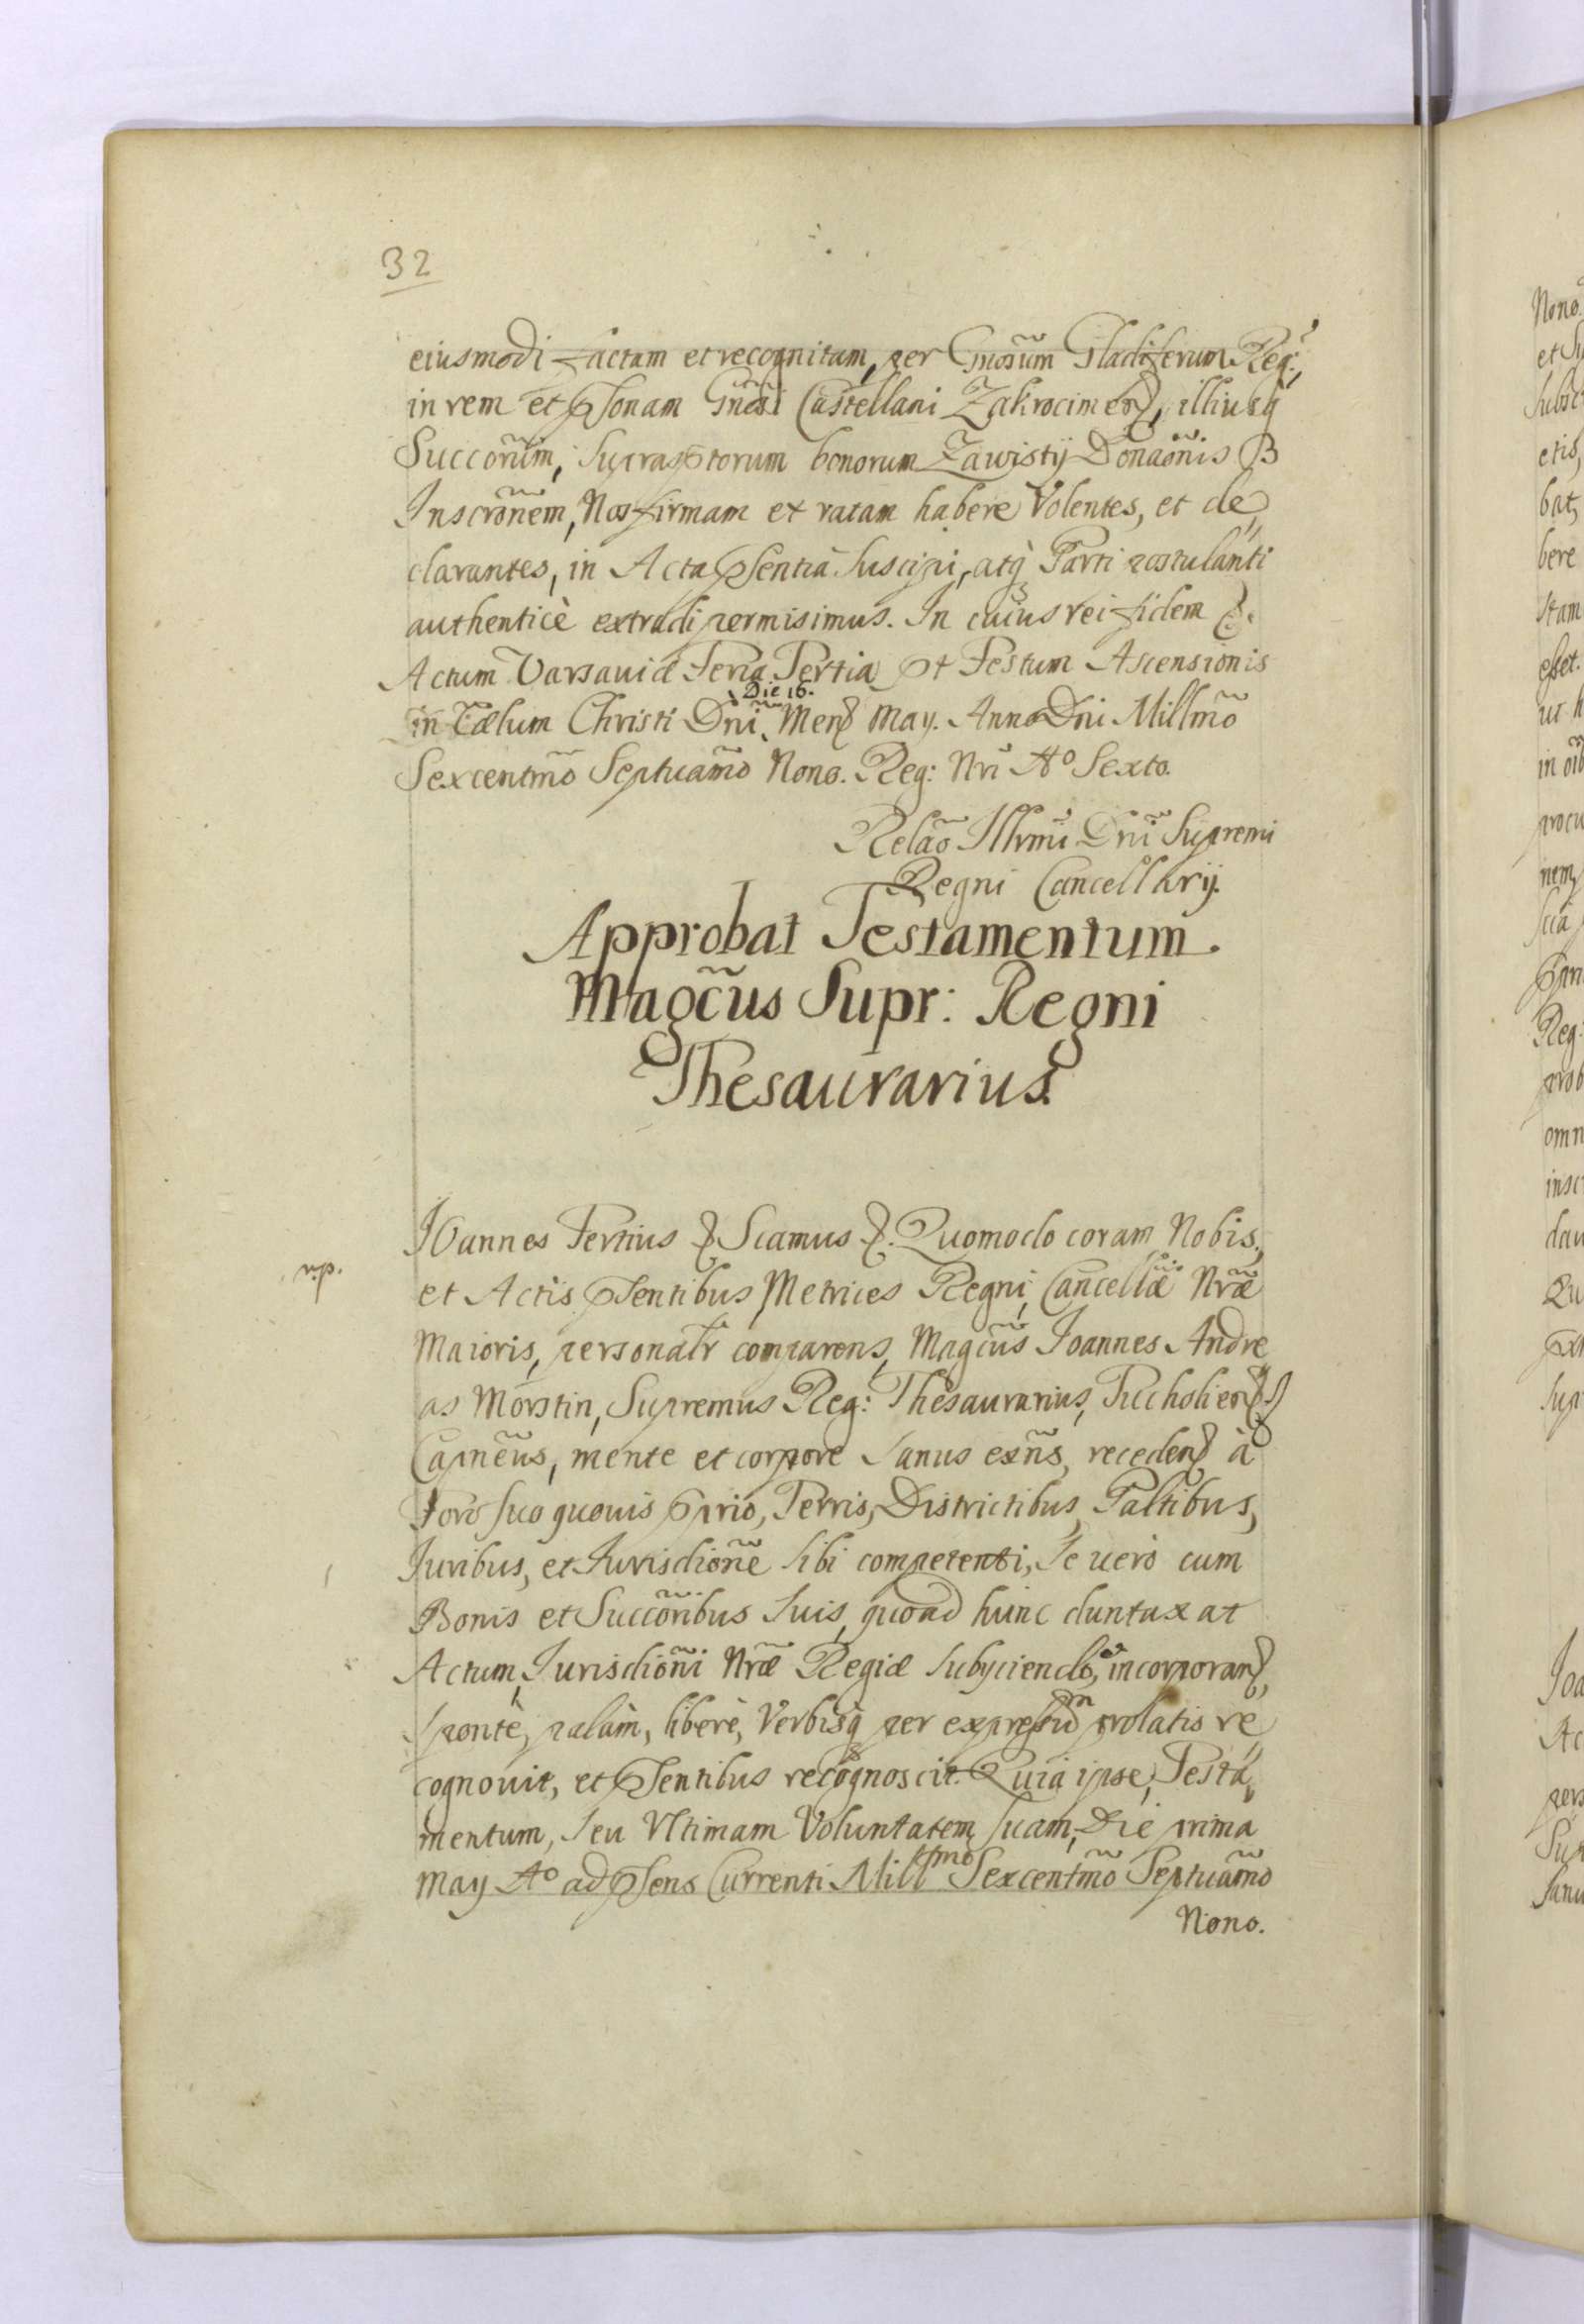 32
eiusmodi factam et recognitam, per Gnosũm Gladiferum Reg:,
in rem et psonam Gnesi Castellani Zakrocimens, illiusq
Succorũm, supraptorum bonorum Zawisty Donaõnis
Inscrõnem, Nos firmam et ratam habere Volentes, et de„
clarantes, in Acta psentia suscipi, atq Parti postulanti
authenticè extradi permisimus. In cuius rei fidem &.
Actum Varsaviæ Feria Tertia pt Festum Ascensionis
in Cælum Christi Dñi, Die 16. Mens May. Anno Dni Millmõ
Sexcentmõ Septuamõ Nono. Reg: Nri Aº Sexto.
Relaõ Illrmi Dni Supremi
Regni Cancellarij.
Approbat Testamentum
Magcũs Supr: Regni
Thesaurarius.
Joannes Tertius & Sciamus &. Quomodo coram Nobis,
et Actis psentibus Metrices Regni, Cancellæ Nræ
Maioris, personalr comparens, Magcũs Joannes Andre„
as Morstin, Supremus Reg: Thesaurarius, Tucholiens
Capnẽus, mente et corpore sanus exñs, recedens à
Foro suo quovis pprio, Terris, Districtibus, Paltibus,
Juribus, et Jurisdiõne sibi competenti, Se verò cum
Bonis et Succoribus suis, quoad hunc duntaxat
Actum, Jurisdiõni Nræ Regiæ subyciendo, incorporans,
sponte, palàm, liberè, Verbisq per expressũm prolatis re„
cognouit, et psentibus recognoscit. Quia ipse, Testa„
mentum, seu Ultimam Voluntatem suam, Die prima
May Aº ad psens Currenti Millsmo Sexcentmõ Septuamõ
Nono.